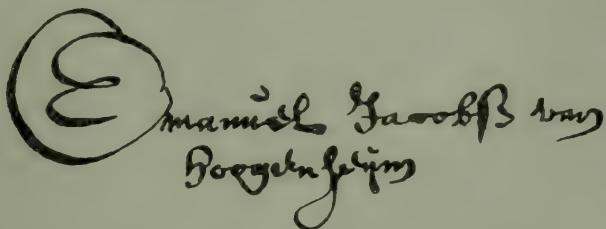 Emanuel Jacobß van
Hoogenheÿm